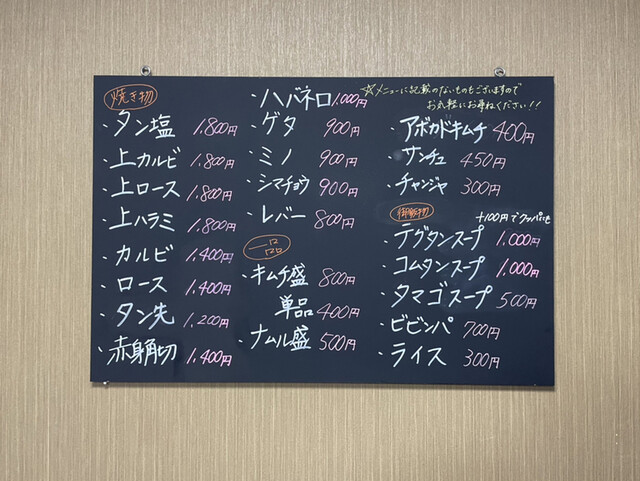 焼き物
・タン塩 1,800円
・上カルビ 1,800円
・上ロース 1,800円
・上ハラミ 1,800円
・カルビ 1,400円
・ロース 1,400円
・タン先 1,200円
・赤身角切 1,400円
・ハバネロ 1,000円
・ゲタ 900円
・ミノ 900円
・シマチョウ 900円
・レバー 800円
一品
・キムチ盛 800円
単品 400円
・ナムル盛 500円
☆メニューに記載のないものもございますので
お気軽にお尋ねください!!
・アボカドキムチ 400円
・サンチュ 450円
・チャンジャ 300円
御飯物
+100円でクッパにも
・テグタンスープ 1,000円
・コムタンスープ 1,000円
・タマゴスープ 500円
・ビビンパ 700円
・ライス 300円